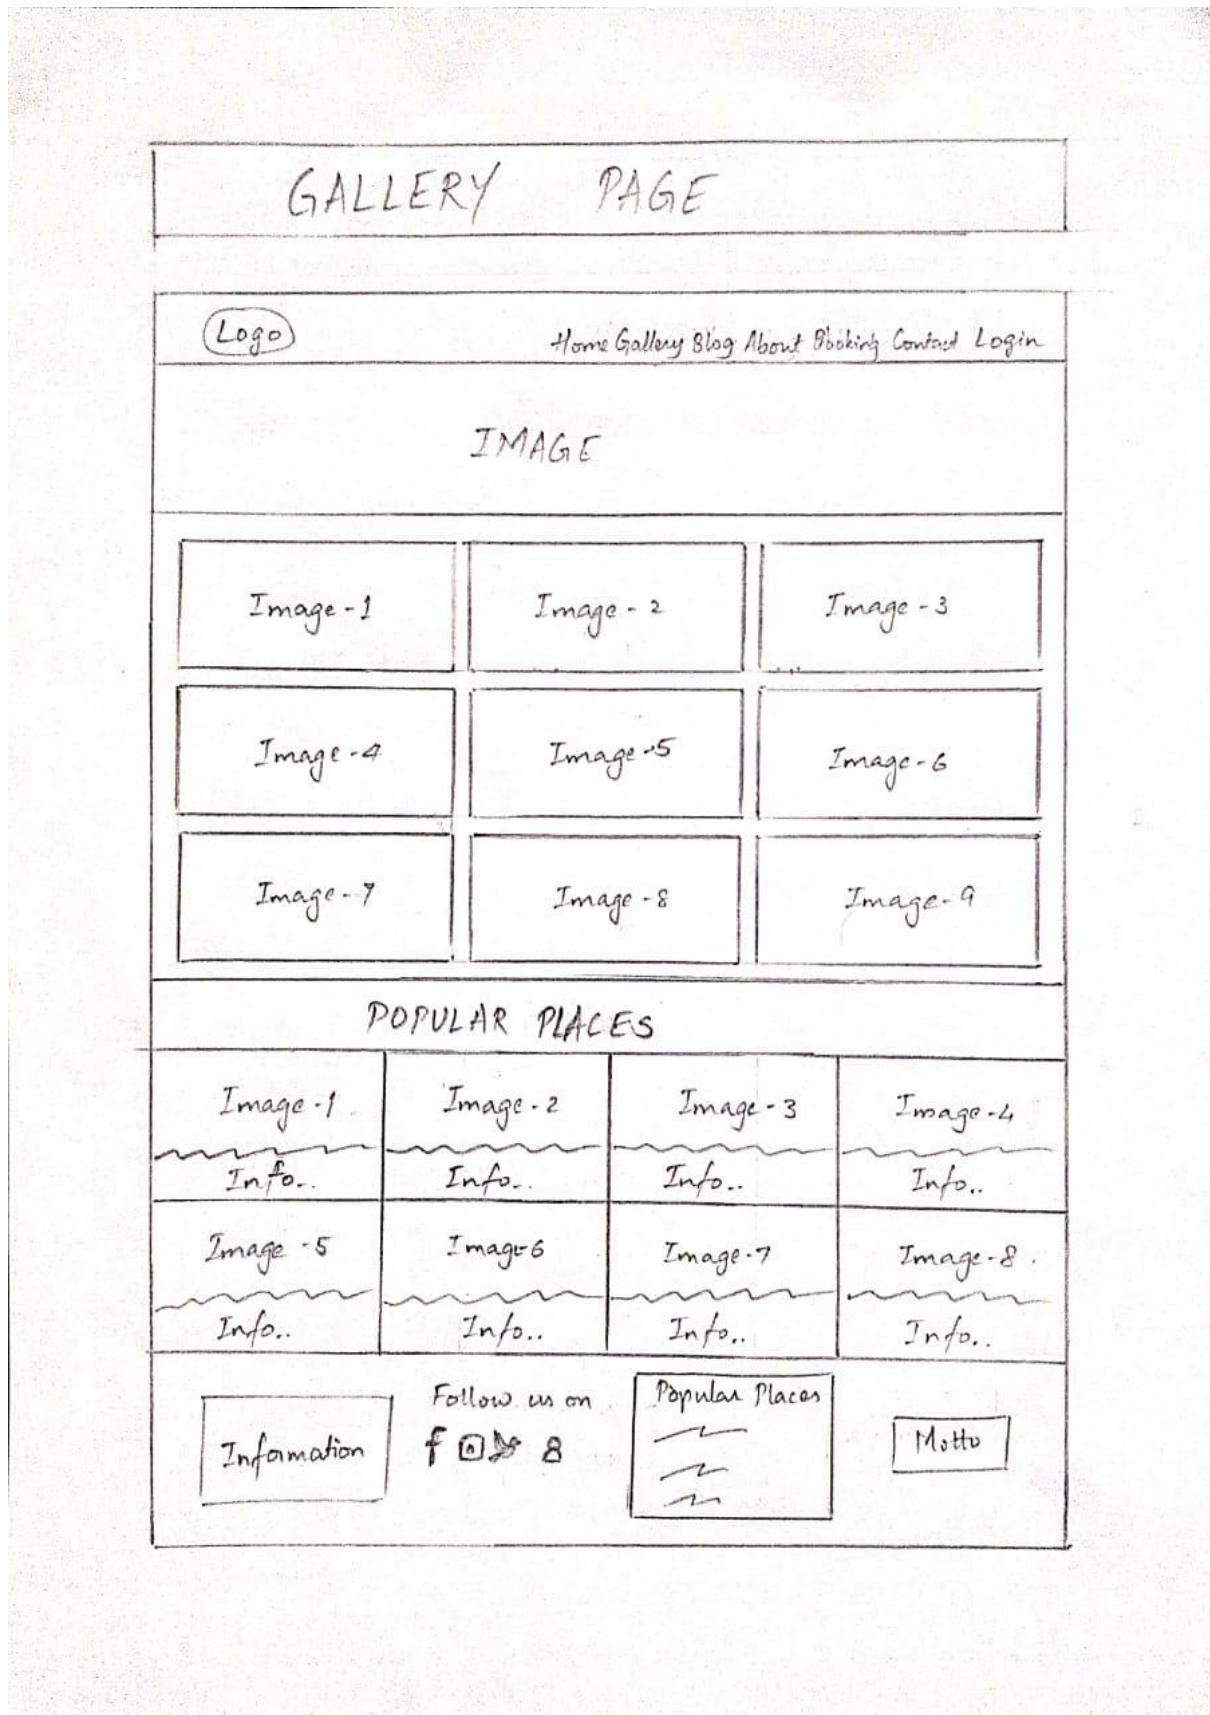 GALLERY PAGE
Logo
Home Gallery Blog About Booking Contact Login
IMAGE
Image - 1
Image - 2
Image - 3
Image - 4
Image - 5
Image - 6
Image - 7
Image - 8
Image - 9
POPULAR PLACES
Image - 1
Image - 2
Image - 3
Image - 4
Info..
Info..
Info..
Info..
Image - 5
Image-6
Image-7
Image-8
Info..
Info..
Info..
Info..
Follow us on
Popular Places
Information
Motto